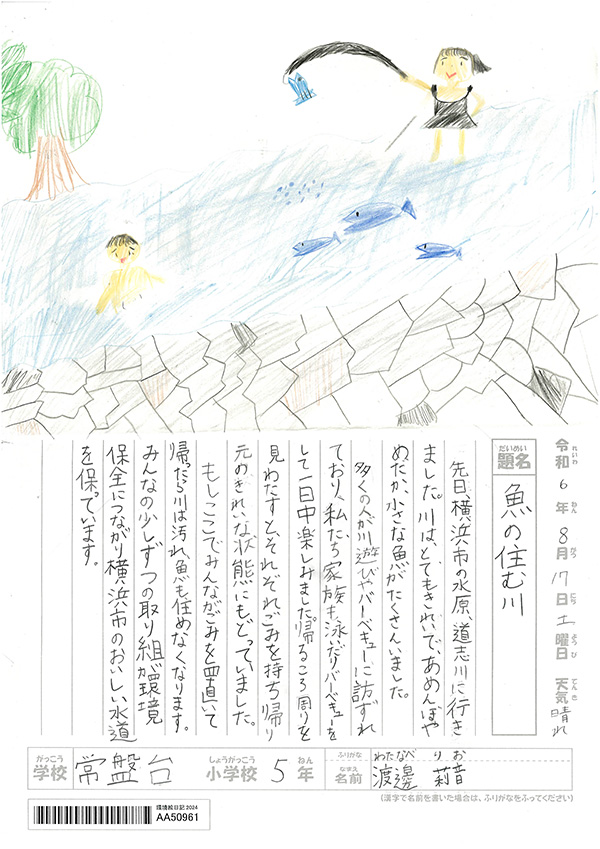 令和6年8月17日土曜日 天気 晴れ
れいわ ねん がつ にち ようび てんき
だいめい
題名 魚の住む川
先日、横浜市の水原、道志川に行き
ました。川は、とてもきれいで、あめんぼや
めだか、小さな魚がたくさんいました。
多くの人が川遊びやバーベキューに訪ずれ
ており、私たち家族も泳いだりバーベキューを
して一日中楽しみました。帰るころ周りを
見わたすとそれぞれごみを持ち帰り
元のきれいな状態にもどっていました。
もしここでみんながごみを置いて
帰ったら川は汚れ、魚も住めなくなります。
みんなの少しずつの取り組が環境
保全につながり横浜市のおいしい水道
を保っています。
がっこう しょうがっこう ねん ふりがな わたなべ りお
学校 常盤台 小学校 5年 なまえ 名前 渡邉 莉音
(漢字で名前を書いた場合は、ふりがなをふってください)
環境絵日記2024
AA50961